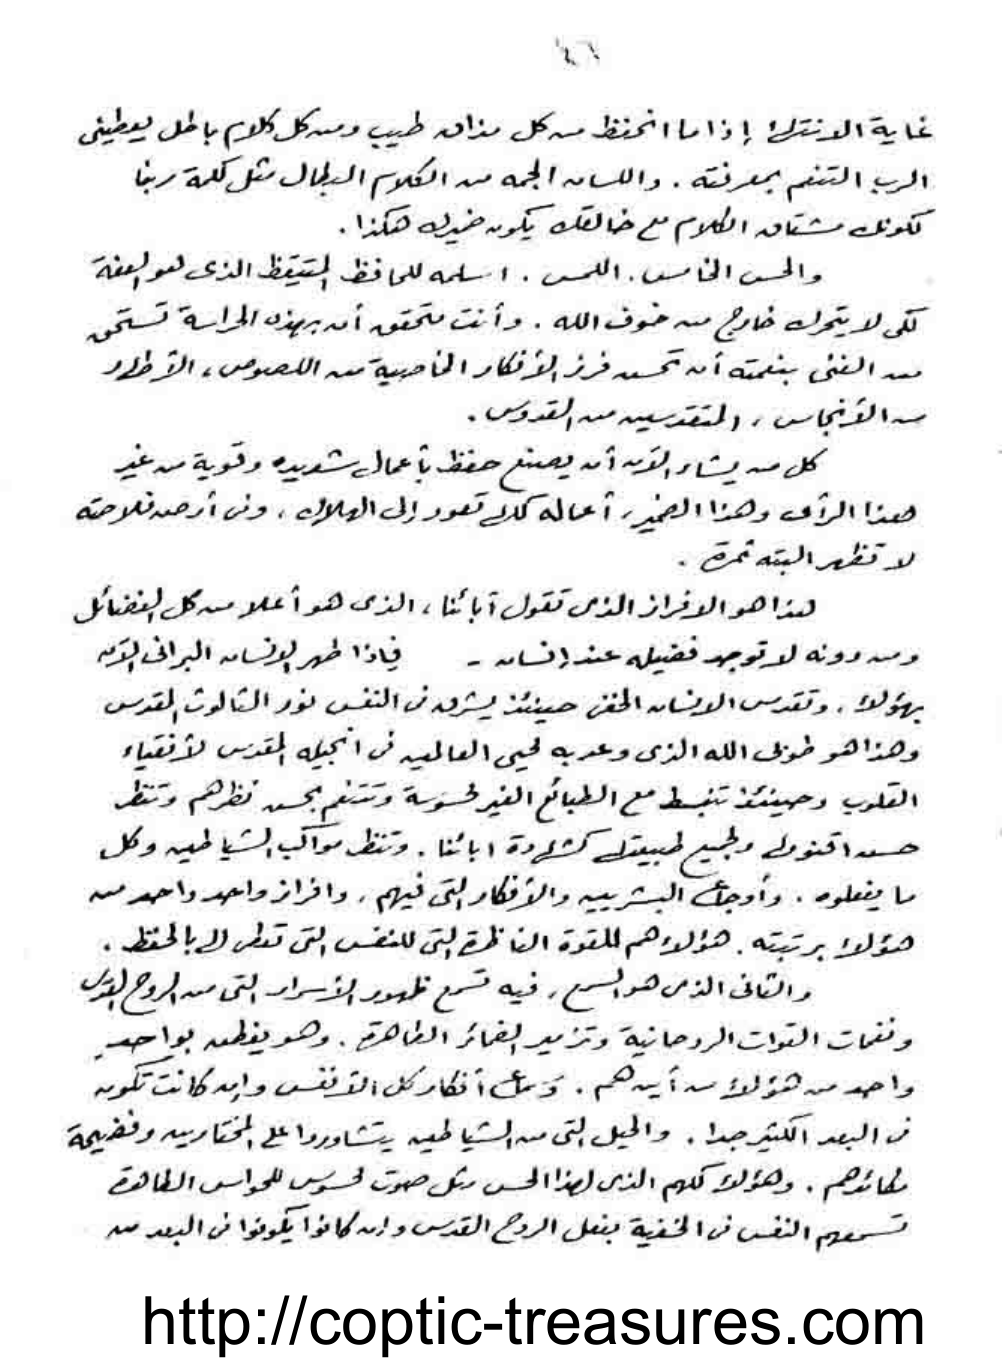 ٤٦
غاية الانتهاء إذا ما انحفظ من كل مذاق طيب ومن كل كلام باطل يعطينى
الرب التنعم بمعرفته . واللسان الجمه من الكلام البطال مثل كلمة ربنا
لكونك مشتاق الكلام مع خالقك يكون ضميرك هكذا .
والحس الخامس . اللمس . اسلمه للحافظ المتيقظ الذى هو العفة
لكى لا يتحرك خارج من خوف الله . وأنت متحقق أن بهذه الحراسة تستحق
من الغنى بنعمته أن تحسن فرز الأفكار الخاصية من اللصوص ، الأطهار
من الأنجاس ، المتقدسين من القدوس .
كل من يشاء الآن أن يصنع حفظ بأعمال شديده وقوية من غير
هذا الرأى وهذا الضمير ، أعماله كلها تعود إلى الهلاك ، وفى أرض فلاحته
لا تظهر البته ثمرة .
هذا هو الافراز الذى تقول آبائنا ، الذى هو أعلا من كل الفضائل
ومن دونه لا توجد فضيله عند إنسان - فإذا طهر الإنسان البرانى الآن
بهؤلاء . وتقدس الانسان الخفى حينئذ يشرق فى النفس نور الثالوث المقدس
وهذا هو طوبى الله الذى وعد به محيى العالمين فى انجيله المقدس لأنقياء
القلوب وحينئذ تنبسط مع الطبائع الغير محسوسة وتتنعم بحسن نظرهم وتنظر
حسن اقنومك وجميع طبيعتك كشهادة ابائنا . وتنظر مواكب الشياطين وكل
ما يفعلوه . وأوجاع البشريين والأفكار التى فيهم ، وافراز واحد واحد من
هؤلاء برتبته . هؤلاء هم للقوة الناظرة التى للنفس التى تعطى لك بالحفظ .
والثانى الذى هو السمع ، فيه تسمع ظهور الأسرار التى من الروح القدس
ونغمات القوات الروحانية وتزامير الضمائر الطاهرة . وهو يفطن بواحد
واحد من هؤلاء من أين هم . وسماع أفكار كل الأنفس وإن كانت تكون
فى البعد الكثير جدا . والحيل التى من الشياطين يتشاوروا على المختارين وفضيحة
مكائدهم . وهؤلاء كلهم الذى لهذا الحس مثل صوت محسوس للحواس الطاهرة
تسمعهم النفس فى الخفية بفعل الروح القدس وإن كانوا يكونوا فى البعد من
http://coptic-treasures.com